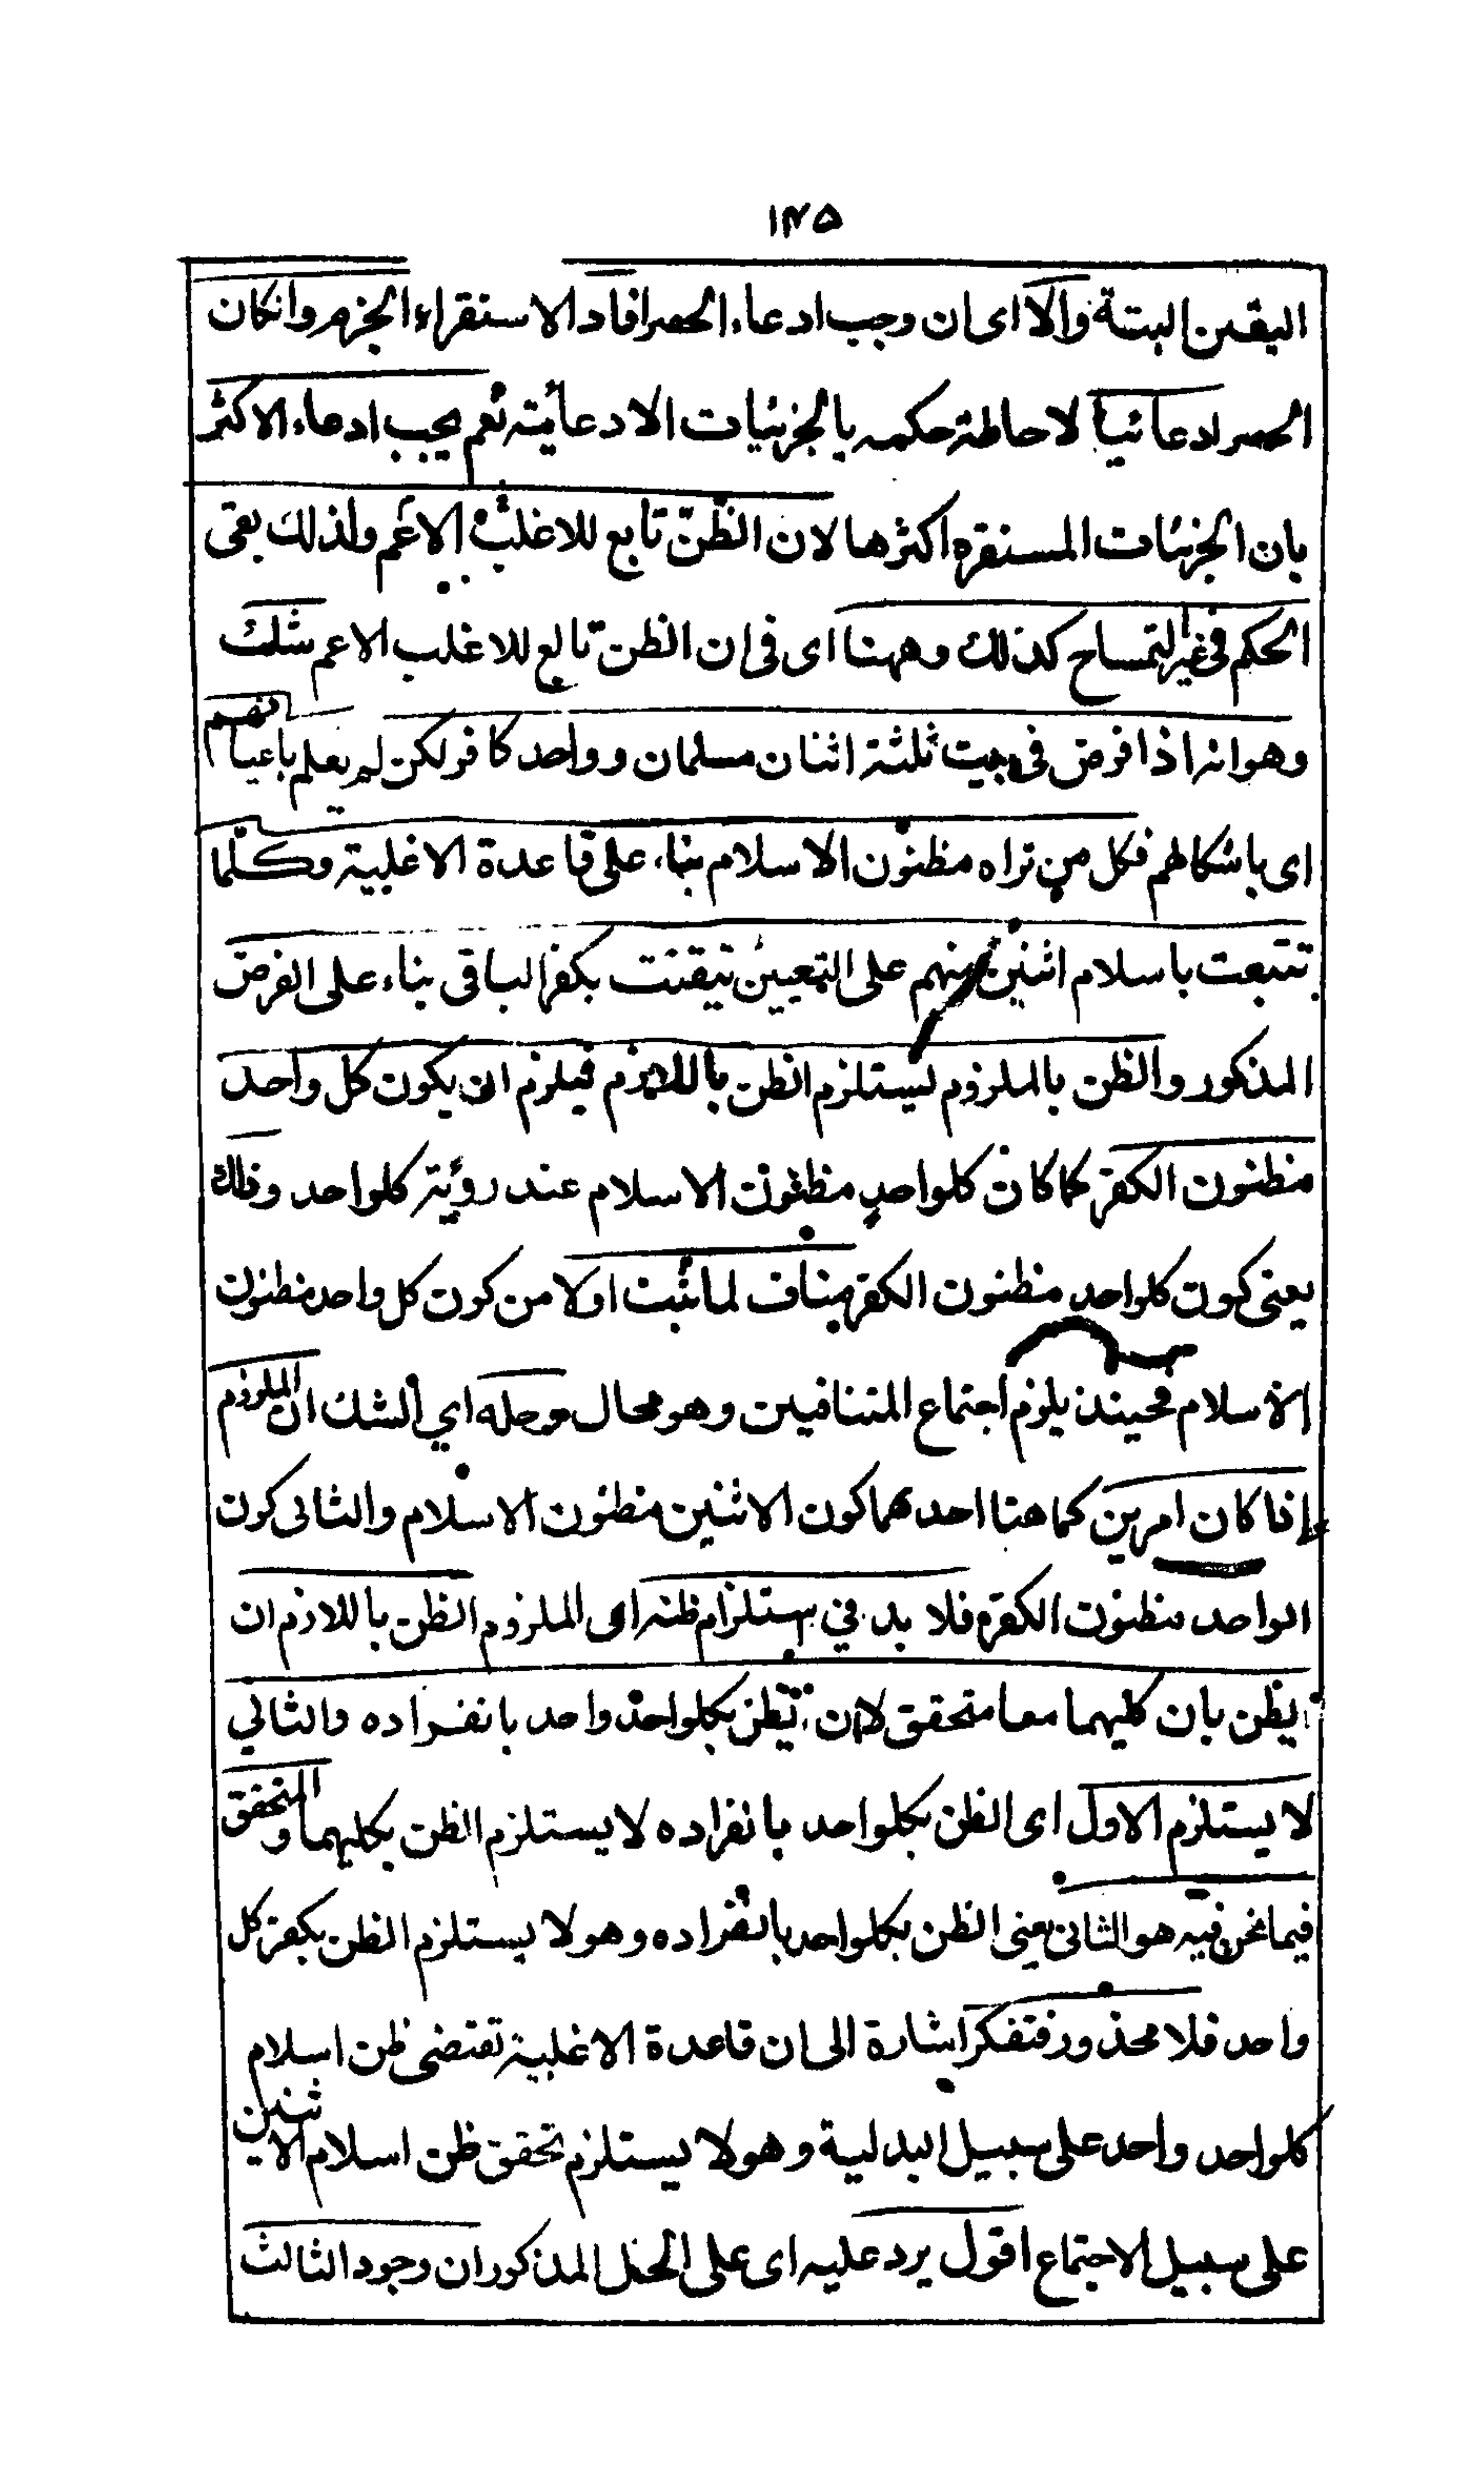 ١٣٥
اليقين البتة والا اى ان وجب ادعاء الحصر افاد الاستقراء الجزم وانكان
الحصر ادعائيا لاحاطة حكمه بالجزئيات الادعائية نعم يجب ادعاء الاكثر
بان الجزئيات المستقره اكثرها لان الظن تابع للاغلب الاعم ولذلك بقى
الحكم فى غير التمساح كذلك وههنا اى فى ان الظن تابع للاغلب الاعم شك
وهو انه اذا فرض فى بيت ثلثة اثنان مسلمان وواحد كافر لكن لم يعلم باعيانهم
اى باشكالهم فكل من تراه مظنون الاسلام بناء على قاعدة الاغلبية وكلما
تتبعت باسلام اثنين منهم على التعيين تيقنت بكفر الباقى بناء على الفرض
المذكور والظن بالملزوم يستلزم الظن باللازم فيلزم ان يكون كل واحد
مظنون الكفر كما كان كلواحد مظنون الاسلام عند رؤية كلواحد وذلك
يعنى كون كلواحد مظنون الكفر مناف لما ثبت اولا من كون كل واحد مظنون
الاسلام فحينئذ يلزم اجتماع المتنافيين وهو محال وحله اي الشك ان الملزوم
إذا كان امرين كما هنا احدهما كون الاثنين مظنون الاسلام والثانى كون
الواحد مظنون الكفر فلا بد في استلزام ظنه اى الملزوم الظن باللازم ان
يظن بان كليهما معا متحقق لان يظن بكلواحد واحد بانفراده والثاني
لا يستلزم الاول اى الظن بكلواحد بانفراده لا يستلزم الظن بكليهما والمتحقق
فيما نحن فيه هو الثانى يعنى الظن بكلواحد بانفراده وهو لا يستلزم الظن بكفر كل
واحد فلا محذور فتفكر اشارة الى ان قاعدة الاغلبية تقتضى ظن اسلام
كلواحد واحد على سبيل البدلية وهو لا يستلزم تحقق ظن اسلام الاثنين
على سبيل الاجتماع اقول يرد عليه اى على الحل المذكور ان وجود الثالث